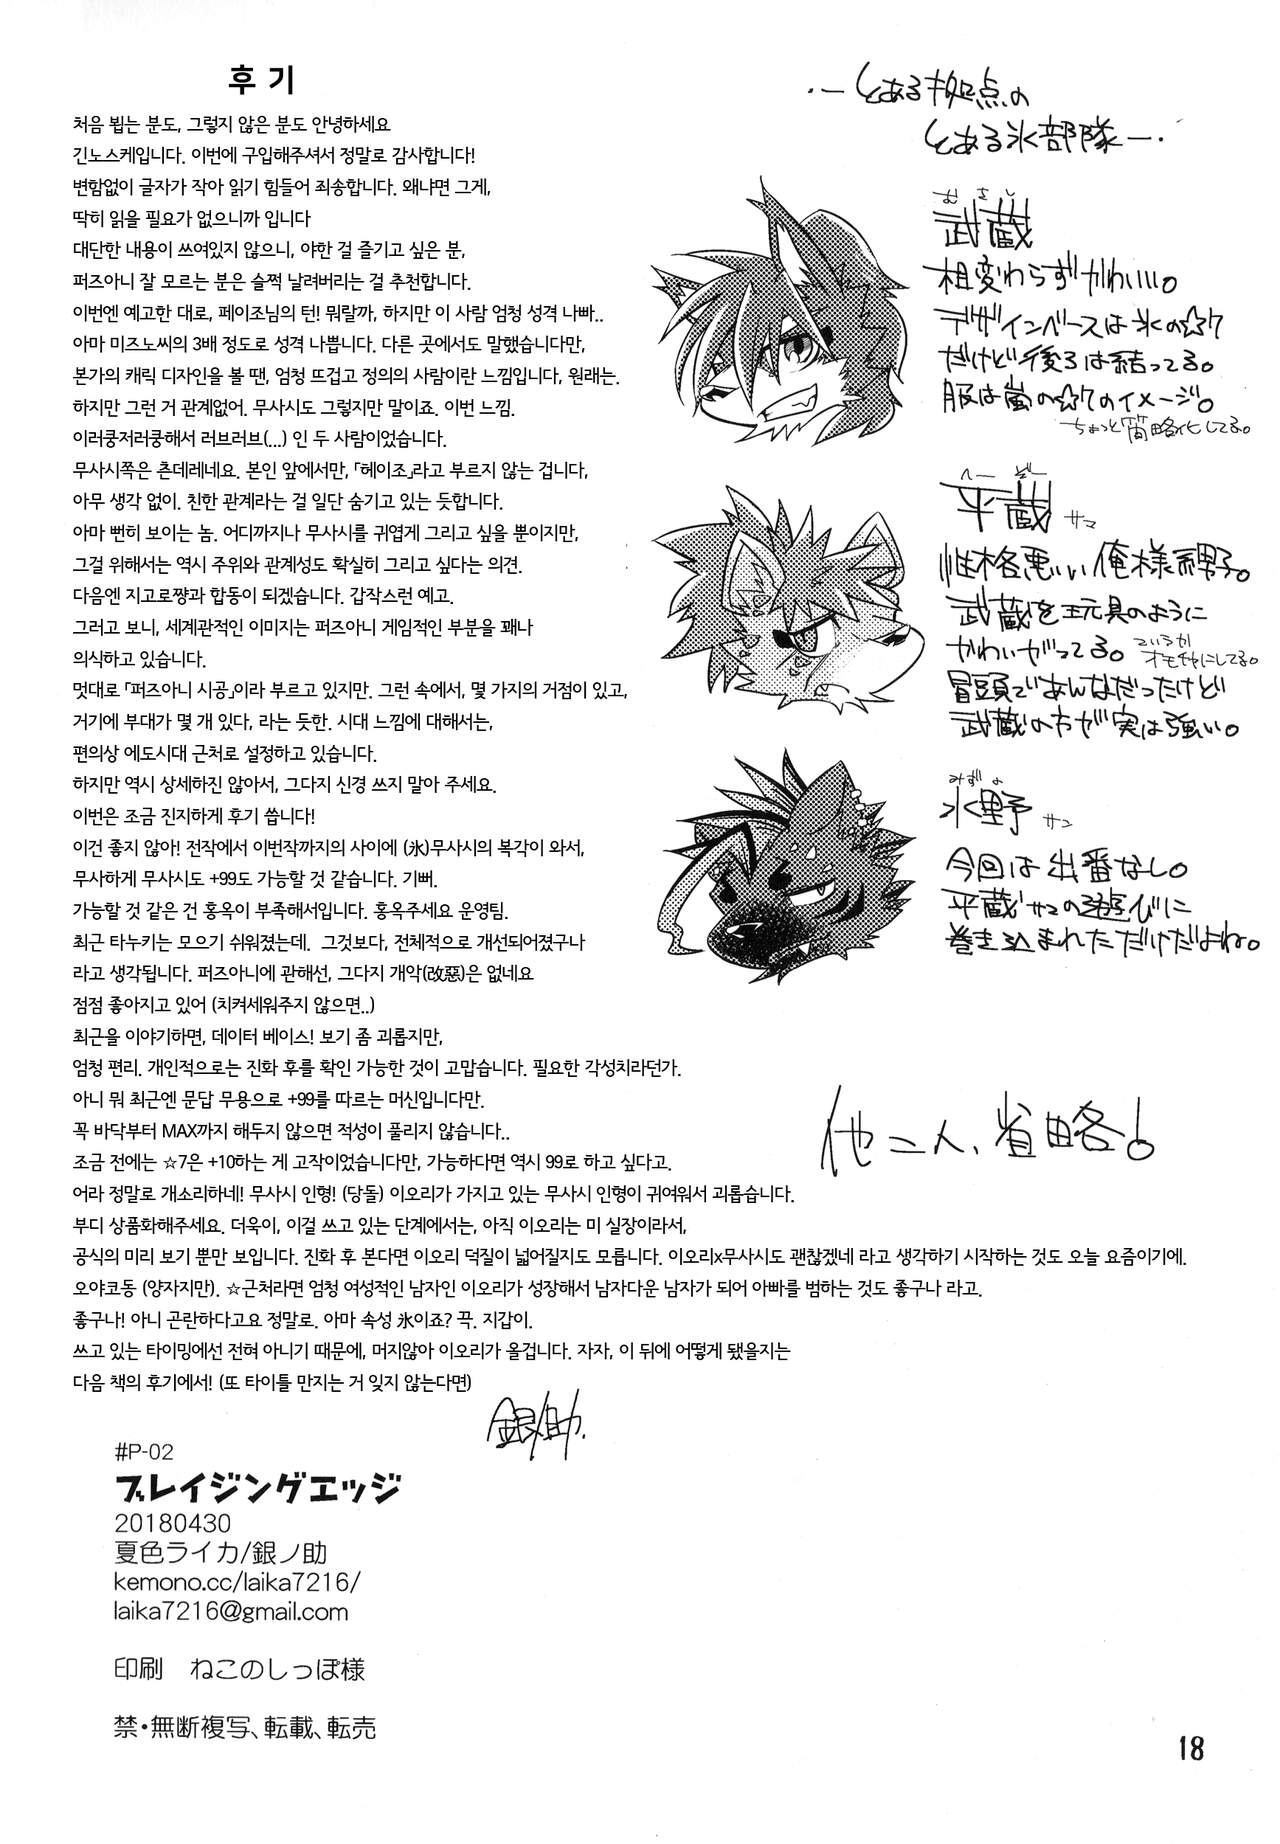 후 기
처음 뵙는 분도, 그렇지 않은 분도 안녕하세요
긴노스케입니다. 이번에 구입해주셔서 정말로 감사합니다!
변함없이 글자가 작아 읽기 힘들어 죄송합니다. 왜냐면 그게,
딱히 읽을 필요가 없으니까 입니다
대단한 내용이 쓰여있지 않으니, 야한 걸 즐기고 싶은 분,
퍼즈아니 잘 모르는 분은 슬쩍 날려버리는 걸 추천합니다.
이번엔 예고한 대로, 페이조님의 턴! 뭐랄까, 하지만 이 사람 엄청 성격 나빠..
아마 미즈노씨의 3배 정도로 성격 나쁩니다. 다른 곳에서도 말했습니다만,
본가의 캐릭 디자인을 볼 땐, 엄청 뜨겁고 정의의 사람이란 느낌입니다, 원래는.
하지만 그런 거 관계없어. 무사시도 그렇지만 말이죠. 이번 느낌.
이러쿵저러쿵해서 러브러브(...) 인 두 사람이었습니다.
무사시쪽은 츤데레네요. 본인 앞에서만, 「헤이조」라고 부르지 않는 겁니다,
아무 생각 없이. 친한 관계라는 걸 일단 숨기고 있는 듯합니다.
아마 뻔히 보이는 놈. 어디까지나 무사시를 귀엽게 그리고 싶을 뿐이지만,
그걸 위해서는 역시 주위와 관계성도 확실히 그리고 싶다는 의견.
다음엔 지고로쨩과 합동이 되겠습니다. 갑작스런 예고.
그러고 보니, 세계관적인 이미지는 퍼즈아니 게임적인 부분을 꽤나
의식하고 있습니다.
멋대로 「퍼즈아니 시공」이라 부르고 있지만. 그런 속에서, 몇 가지의 거점이 있고,
거기에 부대가 몇 개 있다, 라는 듯한. 시대 느낌에 대해서는,
편의상 에도시대 근처로 설정하고 있습니다.
하지만 역시 상세하진 않아서, 그다지 신경 쓰지 말아 주세요.
이번은 조금 진지하게 후기 씁니다!
이건 좋지 않아! 전작에서 이번작까지의 사이에 (氷)무사시의 복각이 와서,
무사하게 무사시도 +99도 가능할 것 같습니다. 기뻐.
가능할 것 같은 건 홍옥이 부족해서입니다. 홍옥주세요 운영팀.
최근 타누키는 모으기 쉬워졌는데. 그것보다, 전체적으로 개선되어졌구나
라고 생각됩니다. 퍼즈아니에 관해선, 그다지 개악(改惡)은 없네요
점점 좋아지고 있어 (치켜세워주지 않으면..)
최근을 이야기하면, 데이터 베이스! 보기 좀 괴롭지만,
엄청 편리. 개인적으로는 진화 후를 확인 가능한 것이 고맙습니다. 필요한 각성치라던가.
아니 뭐 최근엔 문답 무용으로 +99를 따르는 머신입니다만.
꼭 바닥부터 MAX까지 해두지 않으면 적성이 풀리지 않습니다..
조금 전에는 ☆7은 +10하는 게 고작이었습니다만, 가능하다면 역시 99로 하고 싶다고.
어라 정말로 개소리하네! 무사시 인형! (당돌) 이오리가 가지고 있는 무사시 인형이 귀여워서 괴롭습니다.
부디 상품화해주세요. 더욱이, 이걸 쓰고 있는 단계에서는, 아직 이오리는 미 실장이라서,
공식의 미리 보기 뿐만 보입니다. 진화 후 본다면 이오리 덕질이 넓어질지도 모릅니다. 이오리x무사시도 괜찮겠네 라고 생각하기 시작하는 것도 오늘 요즘이기에.
오야코동 (양자지만). ☆근처라면 엄청 여성적인 남자인 이오리가 성장해서 남자다운 남자가 되어 아빠를 범하는 것도 좋구나 라고.
좋구나! 아니 곤란하다고요 정말로. 아마 속성 氷이죠? 끅. 지갑이.
쓰고 있는 타이밍에선 전혀 아니기 때문에, 머지않아 이오리가 올겁니다. 자자, 이 뒤에 어떻게 됐을지는
다음 책의 후기에서! (또 타이틀 만지는 거 잊지 않는다면)
銀ノ助.
#P-02
ブレイジングエッジ
20180430
夏色ライカ/銀ノ助
kemono.cc/laika7216/
laika7216@gmail.com
印刷 ねこのしっぽ様
禁・無断複写、転載、転売
・ーとある拠点の
とある氷部隊ー・
むさし
武蔵
相変わらずかわいい。
デザインベースは氷の☆7
だけど後ろは結ってる。
服は嵐の☆7のイメージ。
ちょっと簡略化してる。
へーぞー
平蔵サマ
性格悪い俺様系男子。
武蔵を玩具のように
かわいがってる。
というか
オモチャにしてる。
冒頭であんなだったけど
武蔵の方が実は強い。
みずの
水野サン
今回は出番なし。
平蔵サマの遊びに
巻き込まれただけだよね。
他二人、省略!
18